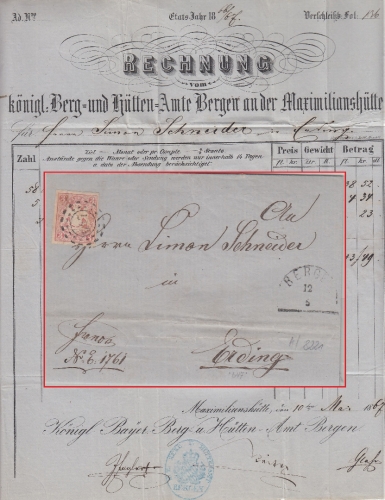 Ad. Nro
Etats-Jahr 18 66/67.
Verschleißb. Fol: 136
RECHNUNG
vom
königl. Berg- und Hütten-Amte Bergen an der Maximilianshütte
für Herrn Simon Schneider in Erding
Zahl
Ziel Monat oder pro Comptat % Sconto
Anstände gegen die Waare oder Sendung werden nur innerhalb 14 Tagen
a dato der Absendung berücksichtiget
Preis
Gewicht
Betrag
fl. kr.
fl. kr.
58
38 52
5
4 34
2
23
An
Herrn Simon Schneider
in
Erding
BERGEN
12
5
Franco
N. E. 1761
Maximilianshütte, den 10ten Mai 1867
Königl. Bayer. Berg- u. Hütten-Amt Bergen